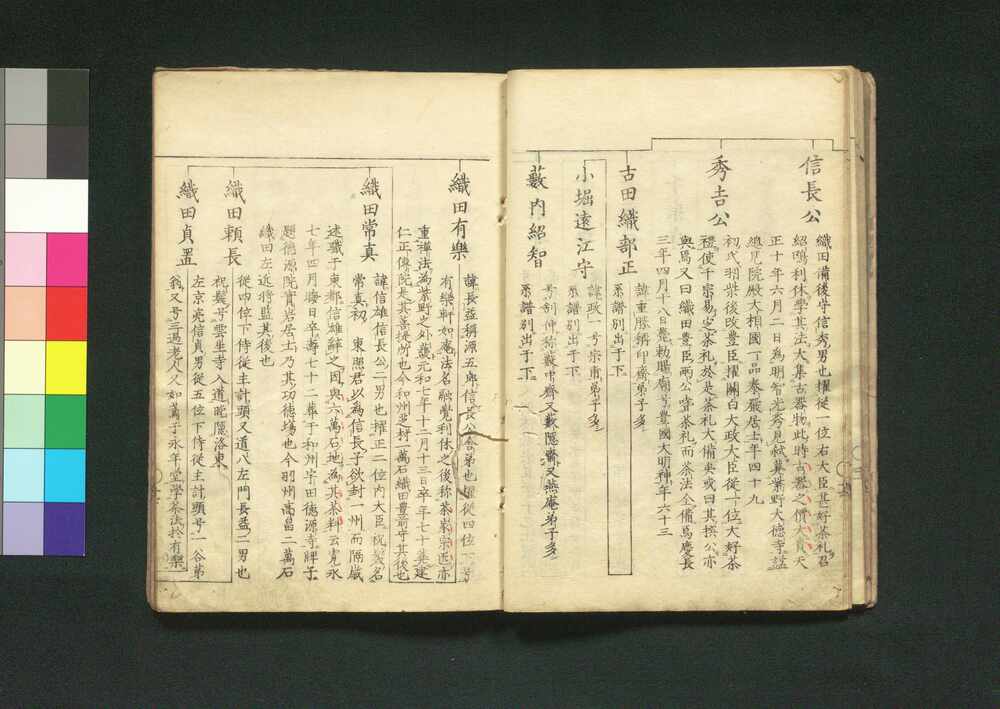 信長公
織田備後守信秀男也擢從一位右大臣甚好茶礼召
紹鷗利休學其法大集古器物此時古器之價大貴天
正十年六月二日為明智光秀見弑葬紫野大德寺諡
總見院殿大相國一品泰巖居士年四十九
秀吉公
初氏羽柴後改豊臣擢關白大政大臣從一位大好茶
禮使千宗易定茶礼於是茶礼大備矣或曰其撰公亦
與焉又曰織田豊臣兩公嗜茶礼而茶法全備焉慶長
三年四月十八日薨勅贈廟号豊國大明神年六十三
古田織部正
諱重勝稱印齋弟子多
系譜別出于下
小堀遠江守
諱政一号宗甫弟子多
系譜別出于下
藪内紹智
号剣仲稱藪中齋又藪隱齋又燕庵弟子多
系譜別出于下
織田有樂
諱長益稱源五郎信長公舎弟也擢從四位下号
有樂軒如庵法名融覺利休之後称茶家宗匠亦
重禅法為紫野之外護元和七年十二月十三日卒年七十葬建
仁正傳院是其菩提所也今和州芝村一萬石織田豊前守其後也
織田常真
諱信雄信長公二男也擢正二位内大臣祝髮名
常真初 東照君以為信長子欲封一州而隔歲
述職于東都信雄辭之因與六萬石地為其茶料云寛永
七年四月晦日卒壽七十二葬于和州宇田德源寺牌子
題德源院實岩居士乃其功德塲也今羽州高畠二萬石
織田左近将監其後也
織田頼長
從四位下侍從主計頭又道八左門長益二男也
祝髮号雲生寺入道晩隱洛東
織田貞置
左京亮信貞男從五位下侍從主計頭号一谷弟
翁又号三過老人又如菴子永年堂學茶法於有樂